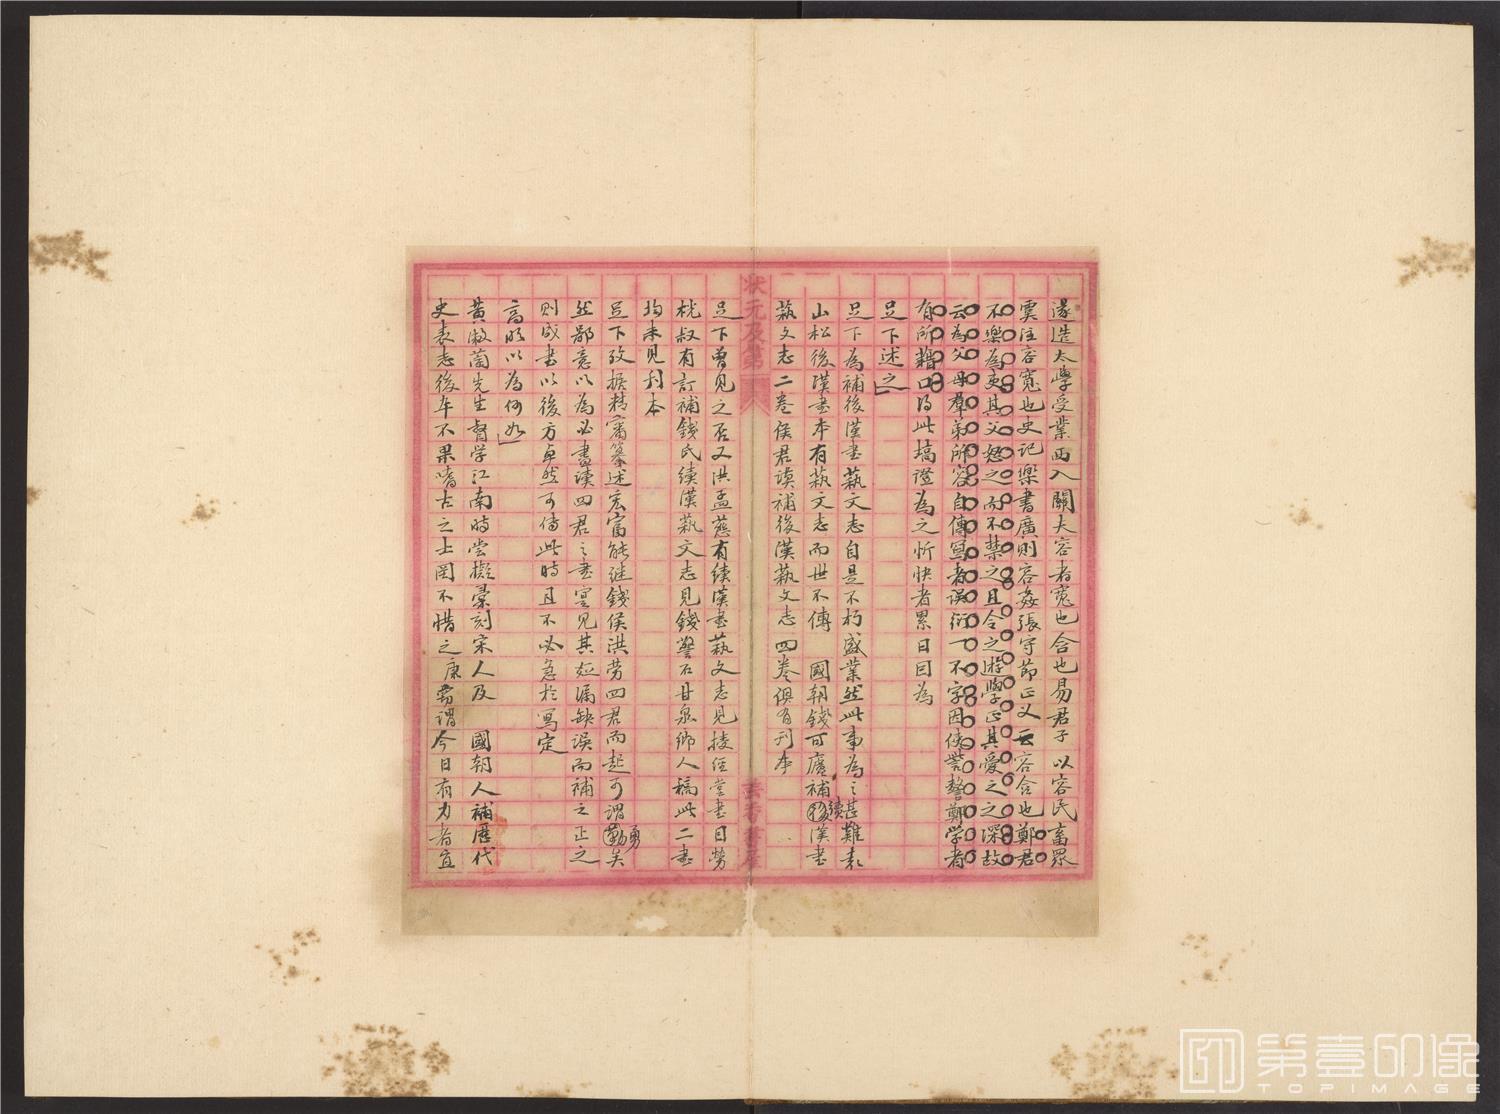 遂造太學受業西入關夫容者寬也含也易君子以容民畜眾
虞注容寬也史記樂書廣則容姦張守節正义云容含也鄭君
不樂為吏其父怒之而不禁之且令之遊學正其愛之之深故
云為父母羣弟所容自傳寫者誤衍一不字因使嘗鼛鄭学者
有所藉口得此塙證為之忻快者累日因為
足下述之
足下為補後漢書蓺文志自是不朽盛業然此事為之甚難袁
山松後漢書本有蓺文志而世不傳 國朝錢可廬補續漢書
蓺文志二卷侯君謨補後漢蓺文志四卷俱有刊本
足下曾見之否又洪孟慈有續漢書蓺文志見授經堂書目勞
桄叔有訂補錢氏續漢蓺文志見錢警石甘泉鄉人稿此二書
均未見刊本
足下攷據精審纂述宏富能继錢侯洪劳四君而起可謂勤勇矣
然鄙意以為必盡读四君之書寔見其短漏缺误而補之正之
则成書以後方卓然可傳此時且不必急於寫定
高明以為何如
黃漱蘭先生督学江南時尝擬彙刻宋人及 國朝人補歷代
史表志後卒不果嗜古之士罔不惜之康嘗谓今日有力者宜
状元及第
TOPIMAGE
第壹印像